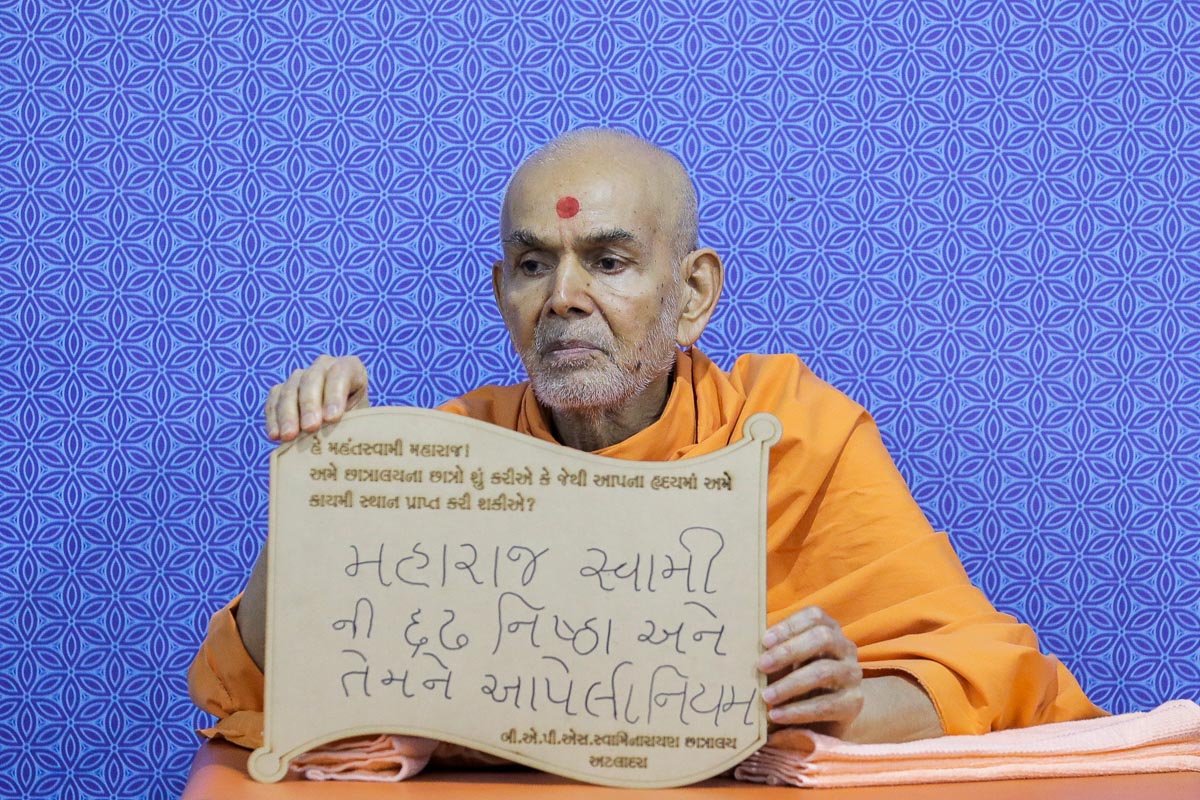 હે મહંતસ્વામી મહારાજ!
અમે છાત્રાલયના છાત્રો શું કરીએ કે જેથી આપના હૃદયમાં અમે
કાયમી સ્થાન પ્રાપ્ત કરી શકીએ?
મહારાજ સ્વામી
ની દૃઢ નિષ્ઠા અને
તેમને આપેલા નિયમ
બી.એ.પી.એસ.સ્વામિનારાયણ છાત્રાલય
અટલાદરા